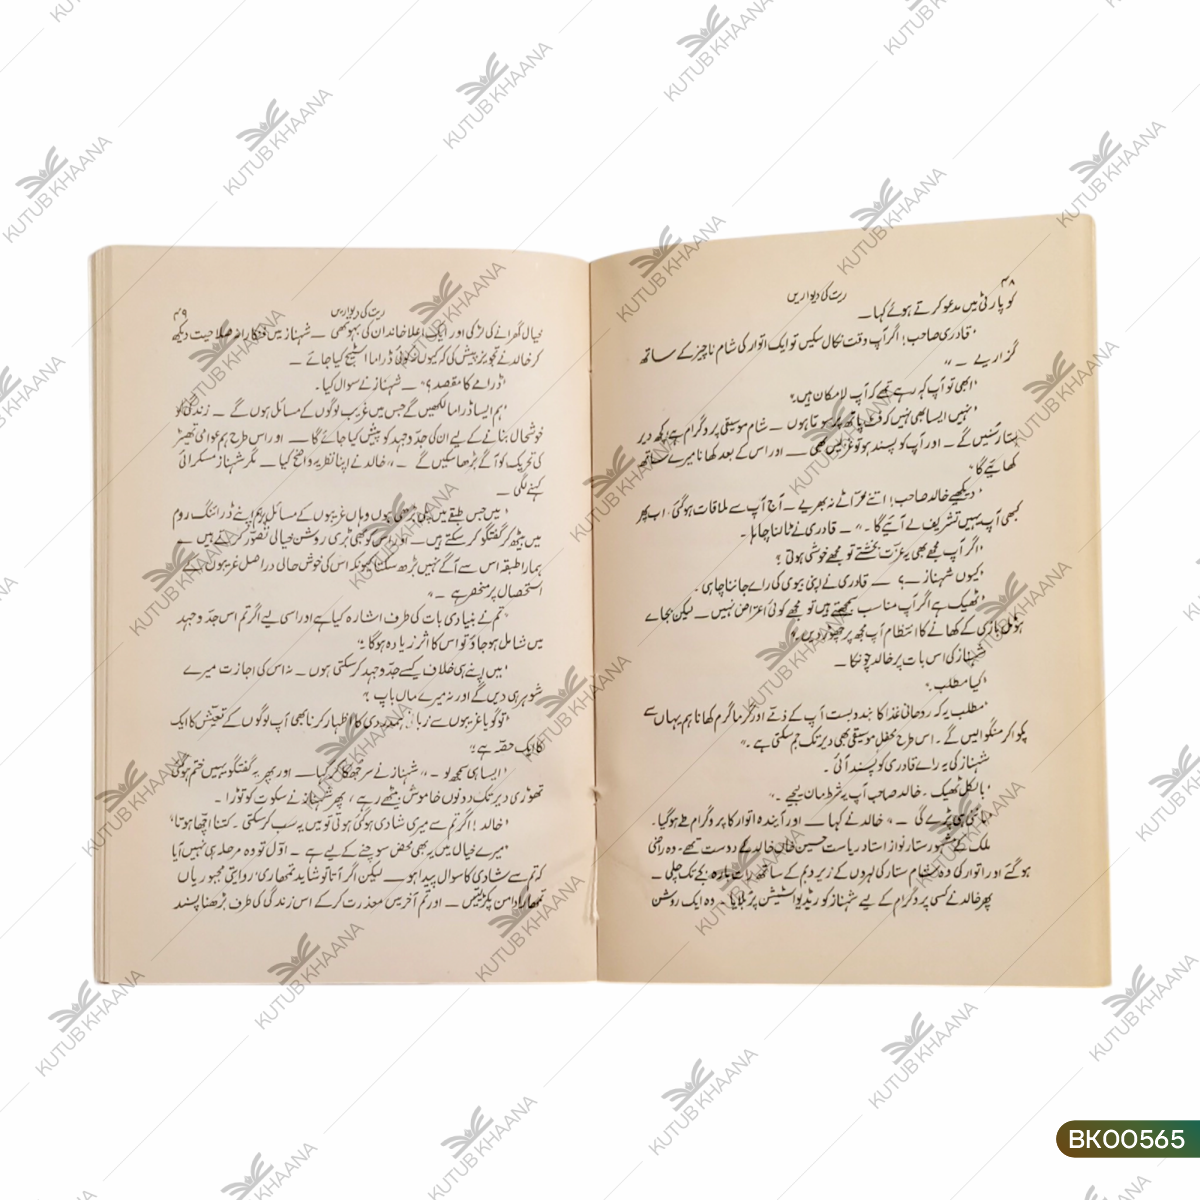 ۴۸
ریت کی دیواریں
کو پارٹی میں مدعو کرتے ہوئے کہا ــ
'قادری صاحب! اگر آپ وقت نکال سکیں تو ایک اتوار کی شام ناچیز کے ساتھ
گزاریے ــ "
'ابھی تو آپ کہہ رہے تھے کہ آپ لامکان ہیں'
'نہیں ایسا بھی نہیں کہ فٹ پاتھ پر سوتا ہوں ــ شام موسیقی پروگرام ہے کچھ دیر
ستار سنیں گے ــ اور آپ کو پسند ہو تو غزلیں بھی ــ اور اس کے بعد کھانا میرے ساتھ
کھائیے گا'
'دیکھیے خالد صاحب! اتنے خرّاٹے نہ بھریے ــ آج آپ سے ملاقات ہوگئی، اب پھر
کبھی آپ یہیں تشریف لے آئیے گا ــ" ــ قادری نے ٹالنا چاہا۔
'اگر آپ مجھے بھی یہ عزت بخشتے تو مجھے خوشی ہوتی'
'کیوں شہناز ــ؟ ــ قادری نے اپنی بیوی کی رائے جاننا چاہی۔
'ٹھیک ہے اگر آپ مناسب سمجھتے ہیں تو مجھے کوئی اعتراض نہیں ــ لیکن بجائے
ہوٹل بازی کے کھانے کا انتظام آپ مجھ پر چھوڑ دیں۔'
شہناز کی اس بات پر خالد چونکا ــ
'کیا مطلب'
'مطلب یہ کہ روحانی غذا کا بندوبست آپ کے ذمّے اور گرما گرم کھانا ہم یہاں سے
پکوا کر منگوالیں گے۔ اس طرح محفل موسیقی بھی دیر تک جم سکتی ہے۔"
شہناز کی یہ رائے قادری کو پسند آئی۔
'بالکل ٹھیک۔ خالد صاحب آپ یہ شرط مان لیجیے۔"
'ماننی ہی پڑے گی ــ" خالد نے کہا ــ اور آیندہ اتوار کا پروگرام طے ہوگیا۔
ملک کے مشہور ستار نواز استاد ریاست حسین خاں خالد کے دوست تھے۔ وہ راضی
ہوگئے اور اتوار کی وہ شام ستار کی لہروں کے زیر و بم کے ساتھ رات بارہ بجے تک چلی ــ
پھر خالد نے کسی پروگرام کے لیے شہناز کو ریڈیو اسٹیشن پر بلایا ــ وہ ایک روشن
ریت کی دیواریں
۴۹
خیال گھرانے کی لڑکی اور ایک اعلا خاندان کی بہو تھی ــ شہناز میں فنکارانہ صلاحیت دیکھ
کر خالد نے تجویز پیش کی کہ کیوں نہ کوئی ڈراما اسٹیج کیا جائے ــ
'ڈرامے کا مقصد؟" ــ شہناز نے سوال کیا۔
'ہم ایسا ڈراما لکھیں گے جس میں غریب لوگوں کے مسائل ہوں گے ــ زندگی کو
خوشحال بنانے کے لیے ان کی جدّوجہد کو پیش کیا جائے گا ــ اور اس طرح ہم عوامی تھیٹر
کی تحریک کو آگے بڑھا سکیں گے ــ" خالد نے اپنا نظریہ واضح کیا ــ مگر شہناز مسکرائی
کہنے لگی ــ
'میں جس طبقے میں پلی بڑھی ہوں وہاں غریبوں کے مسائل پر ہم اپنے ڈرائنگ روم
میں بیٹھ کر گفتگو کرسکتے ہیں ــ اور اس کو بھی بڑی روشن خیالی تصور کرتے ہیں ــ
ہمارا طبقہ اس سے آگے نہیں بڑھ سکتا کیونکہ اس کی خوش حالی دراصل غریبوں کے
استحصال پر منحصر ہے ــ"
'تم نے بنیادی بات کی طرف اشارہ کیا ہے اور اسی لیے اگر تم اس جدّوجہد
میں شامل ہوجاؤ تو اس کا اثر زیادہ ہوگا'
'میں اپنے ہی خلاف کیسے جدّوجہد کرسکتی ہوں ــ نہ اس کی اجازت میرے
شوہر ہی دیں گے اور نہ میرے ماں باپ'
'تو گویا غریبوں سے زبانی ہمدردی کا اظہار کرنا بھی آپ لوگوں کے تعیّش کا ایک
کا ایک حصّہ ہے'
'ایسا ہی سمجھ لو ــ" شہناز نے سر جھکا کر کہا ــ اور پھر یہ گفتگو یہیں ختم ہوگئی
تھوڑی دیر تک دونوں خاموش بیٹھے رہے، پھر شہناز نے سکوت کو توڑا۔
'خالد! اگر تم سے میری شادی ہوگئی ہوتی تو میں یہ سب کرسکتی۔ کتنا اچھا ہوتا'
'میرے خیال میں یہ بھی محض سوچنے کے لیے ہے ــ اوّل تو وہ مرحلہ ہی نہیں آیا
کہ تم سے شادی کا سوال پیدا ہو ــ لیکن اگر آتا تو شاید تمھاری روایتی مجبوریاں
تمھارا دامن پکڑ لیتیں ــ اور تم آخر میں معذرت کرکے اس زندگی کی طرف بڑھنا پسند
KUTUB KHAANA
BK00565